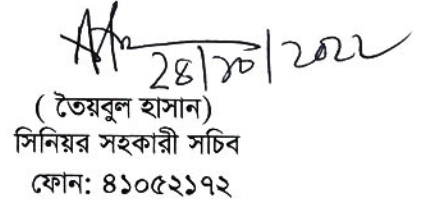 28/১০/2022
( তৈয়বুল হাসান)
সিনিয়র সহকারী সচিব
ফোন: ৪১০৫২১৭২